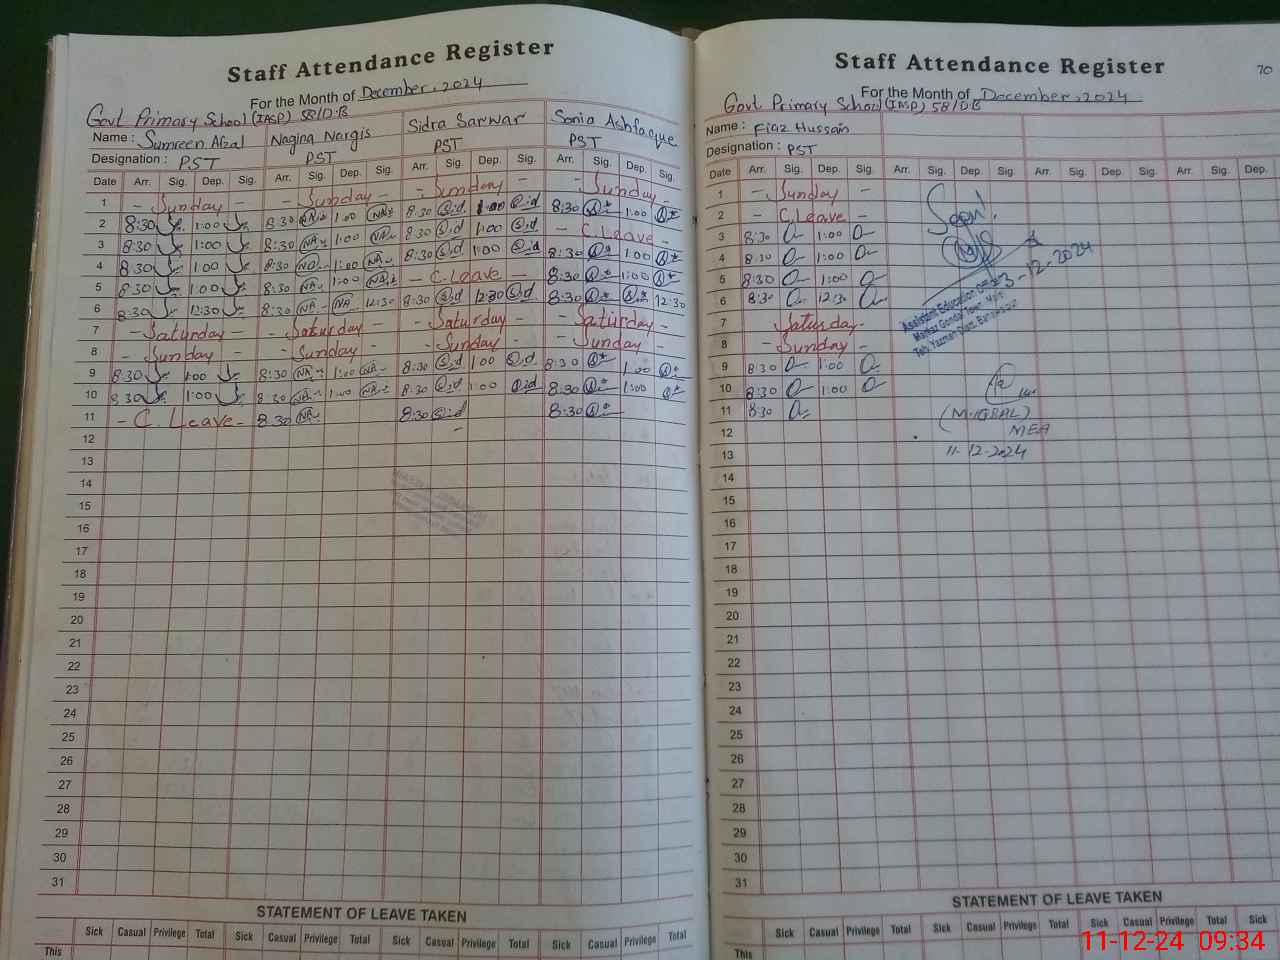 Staff Attendance Register
For the Month of December, 2024
Govt Primary School (IASP) 58/DB
Name : Sumreen Afzal Nagina Nargis Sidra Sarwar Sonia Ashfaque
Designation : PST PST PST PST
Date Arr. Sig. Dep. Sig. Arr. Sig. Dep. Sig. Arr. Sig. Dep. Sig. Arr. Sig. Dep. Sig.
1 - Sunday - - Sunday - - Sunday - - Sunday -
2 8:30 1:00 8:30 NA 1:00 NA 8:30 S.d 1:00 S.d 8:30 1:00
3 8:30 1:00 8:30 NA 1:00 NA 8:30 S.d 1:00 S.d - C.Leave -
4 8:30 1:00 8:30 NA 1:00 NA 8:30 S.d 1:00 S.d 8:30 1:00
5 8:30 1:00 8:30 NA 1:00 NA - C.Leave - 8:30 1:00
6 8:30 12:30 8:30 NA NA 12:30 8:30 S.d 12:30 S.d 8:30 12:30
7 - Saturday - - Saturday - - Saturday - - Saturday -
8 - Sunday - - Sunday - - Sunday - - Sunday -
9 8:30 1:00 8:30 NA 1:00 NA 8:30 S.d 1:00 S.d 8:30 1:00
10 8:30 1:00 8:30 NA 1:00 NA 8:30 S.d 1:00 S.d 8:30 1:00
11 - C. Leave - 8:30 NA 8:30 S.d 8:30
12
13
14
15
16
17
18
19
20
21
22
23
24
25
26
27
28
29
30
31
STATEMENT OF LEAVE TAKEN
Sick Casual Privilege Total Sick Casual Privilege Total Sick Casual Privilege Total Sick Casual Privilege Total
This
Staff Attendance Register
70
For the Month of December, 2024
Govt Primary School (IASP) 58/DB
Name : Fiaz Hussain
Designation : PST
Date Arr. Sig. Dep. Sig. Arr. Sig. Dep. Sig. Arr. Sig. Dep. Sig. Arr. Sig. Dep.
1 - Sunday -
2 - C.Leave -
3 8:30 1:00
4 8:30 1:00
5 8:30 1:00
6 8:30 12:30
7 Saturday -
8 - Sunday -
9 8:30 1:00
10 8:30 1:00
11 8:30
12
13
14
15
16
17
18
19
20
21
22
23
24
25
26
27
28
29
30
31
Seen!
3-12-2024
Assistant Education Officer
Markaz
Teh: Yazman Distt. Bahawalpur
(M.IQBAL)
MEA
11-12-2024
STATEMENT OF LEAVE TAKEN
Sick Casual Privilege Total Sick Casual Privilege Total Sick Casual Privilege Total Sick
This
11-12-24 09:34